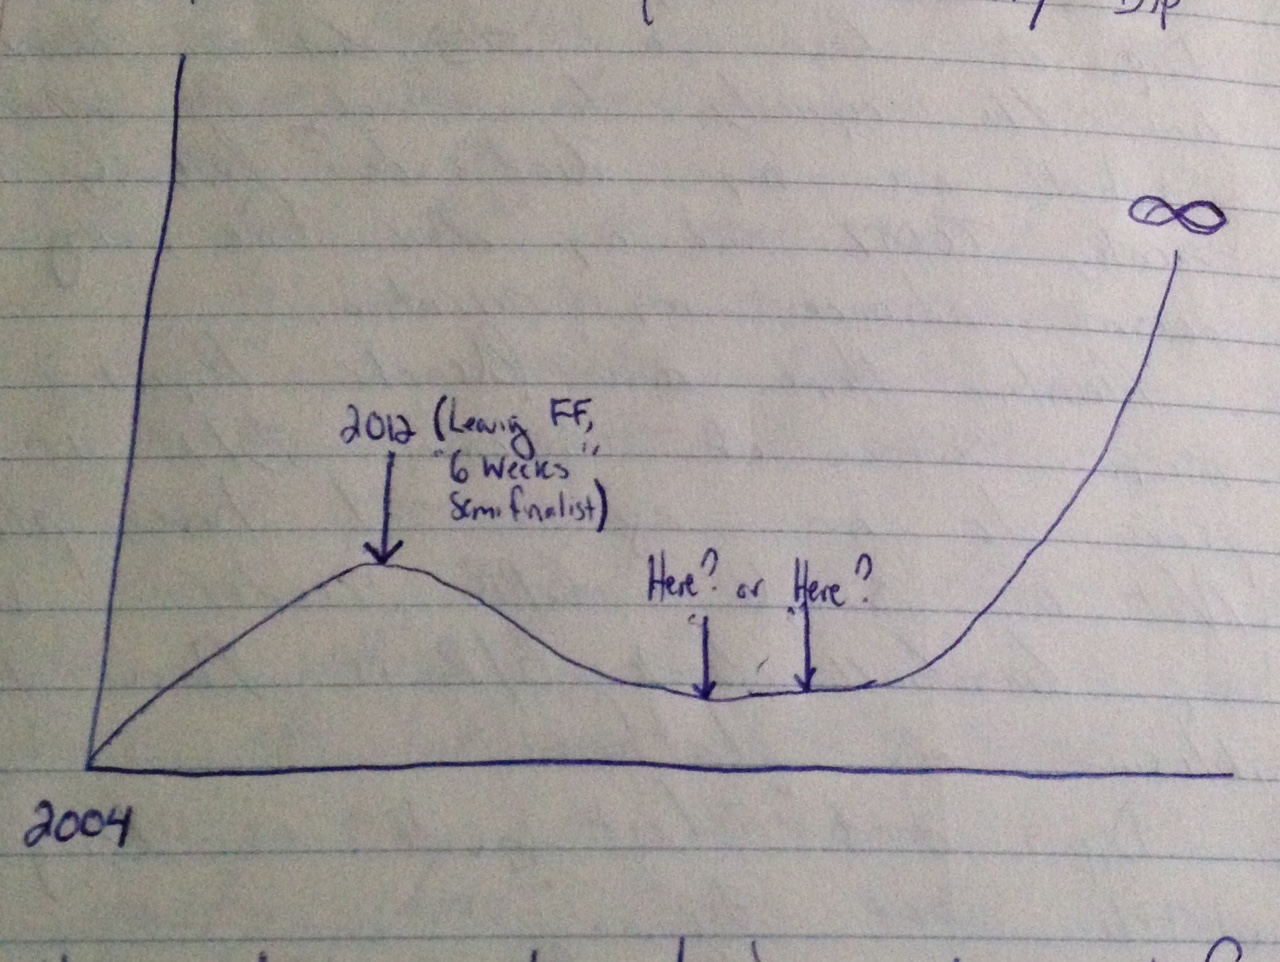 Dip
∞
2012 (Leaving FF,
"6 Weeks",
Semifinalist)
Here? or Here?
2004